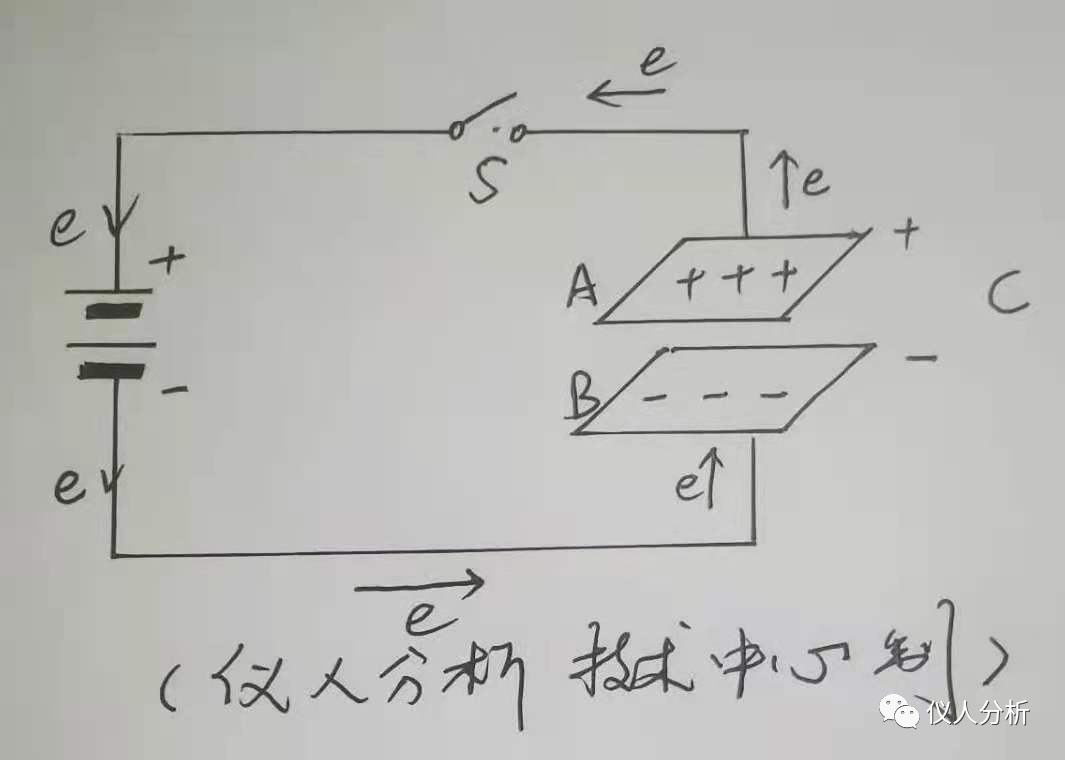 e
S
e
e
+
A
+ + +
+
C
-
B
- - -
-
e
e
e
(仪人分析 技术中心制)
仪人分析